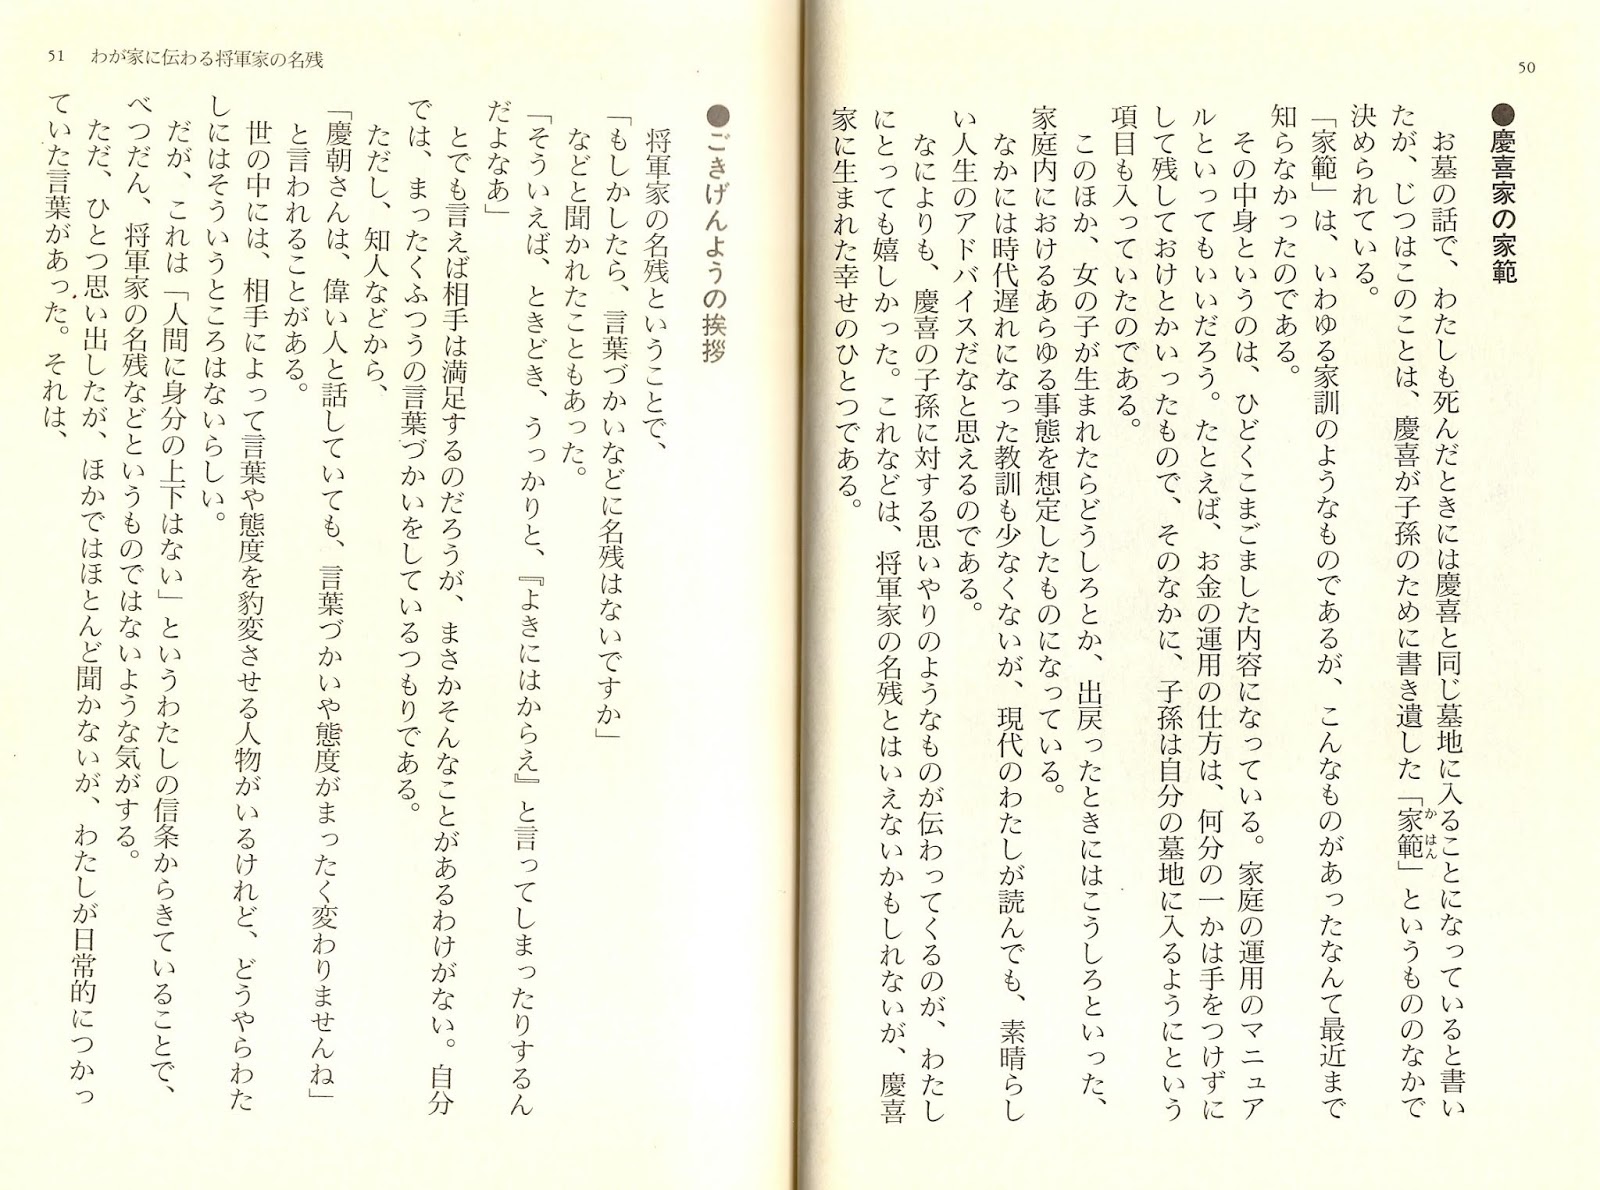 50
●慶喜家の家範
お墓の話で、わたしも死んだときには慶喜と同じ墓地に入ることになっていると書い
たが、じつはこのことは、慶喜が子孫のために書き遺した「家範」というもののなかで
かはん
決められている。
「家範」は、いわゆる家訓のようなものであるが、こんなものがあったなんて最近まで
知らなかったのである。
その中身というのは、ひどくこまごました内容になっている。家庭の運用のマニュア
ルといってもいいだろう。たとえば、お金の運用の仕方は、何分の一かは手をつけずに
して残しておけとかいったもので、そのなかに、子孫は自分の墓地に入るようにという
項目も入っていたのである。
このほか、女の子が生まれたらどうしろとか、出戻ったときにはこうしろといった、
家庭内におけるあらゆる事態を想定したものになっている。
なかには時代遅れになった教訓も少なくないが、現代のわたしが読んでも、素晴らし
い人生のアドバイスだなと思えるのである。
なによりも、慶喜の子孫に対する思いやりのようなものが伝わってくるのが、わたし
にとっても嬉しかった。これなどは、将軍家の名残とはいえないかもしれないが、慶喜
家に生まれた幸せのひとつである。
51 わが家に伝わる将軍家の名残
●ごきげんようの挨拶
将軍家の名残ということで、
「もしかしたら、言葉づかいなどに名残はないですか」
などと聞かれたこともあった。
「そういえば、ときどき、うっかりと、『よきにはからえ』と言ってしまったりするん
だよなあ」
とでも言えば相手は満足するのだろうが、まさかそんなことがあるわけがない。自分
では、まったくふつうの言葉づかいをしているつもりである。
ただし、知人などから、
「慶朝さんは、偉い人と話していても、言葉づかいや態度がまったく変わりませんね」
と言われることがある。
世の中には、相手によって言葉や態度を豹変させる人物がいるけれど、どうやらわた
しにはそういうところはないらしい。
だが、これは「人間に身分の上下はない」というわたしの信条からきていることで、
べつだん、将軍家の名残などというものではないような気がする。
ただ、ひとつ思い出したが、ほかではほとんど聞かないが、わたしが日常的につかっ
ていた言葉があった。それは、